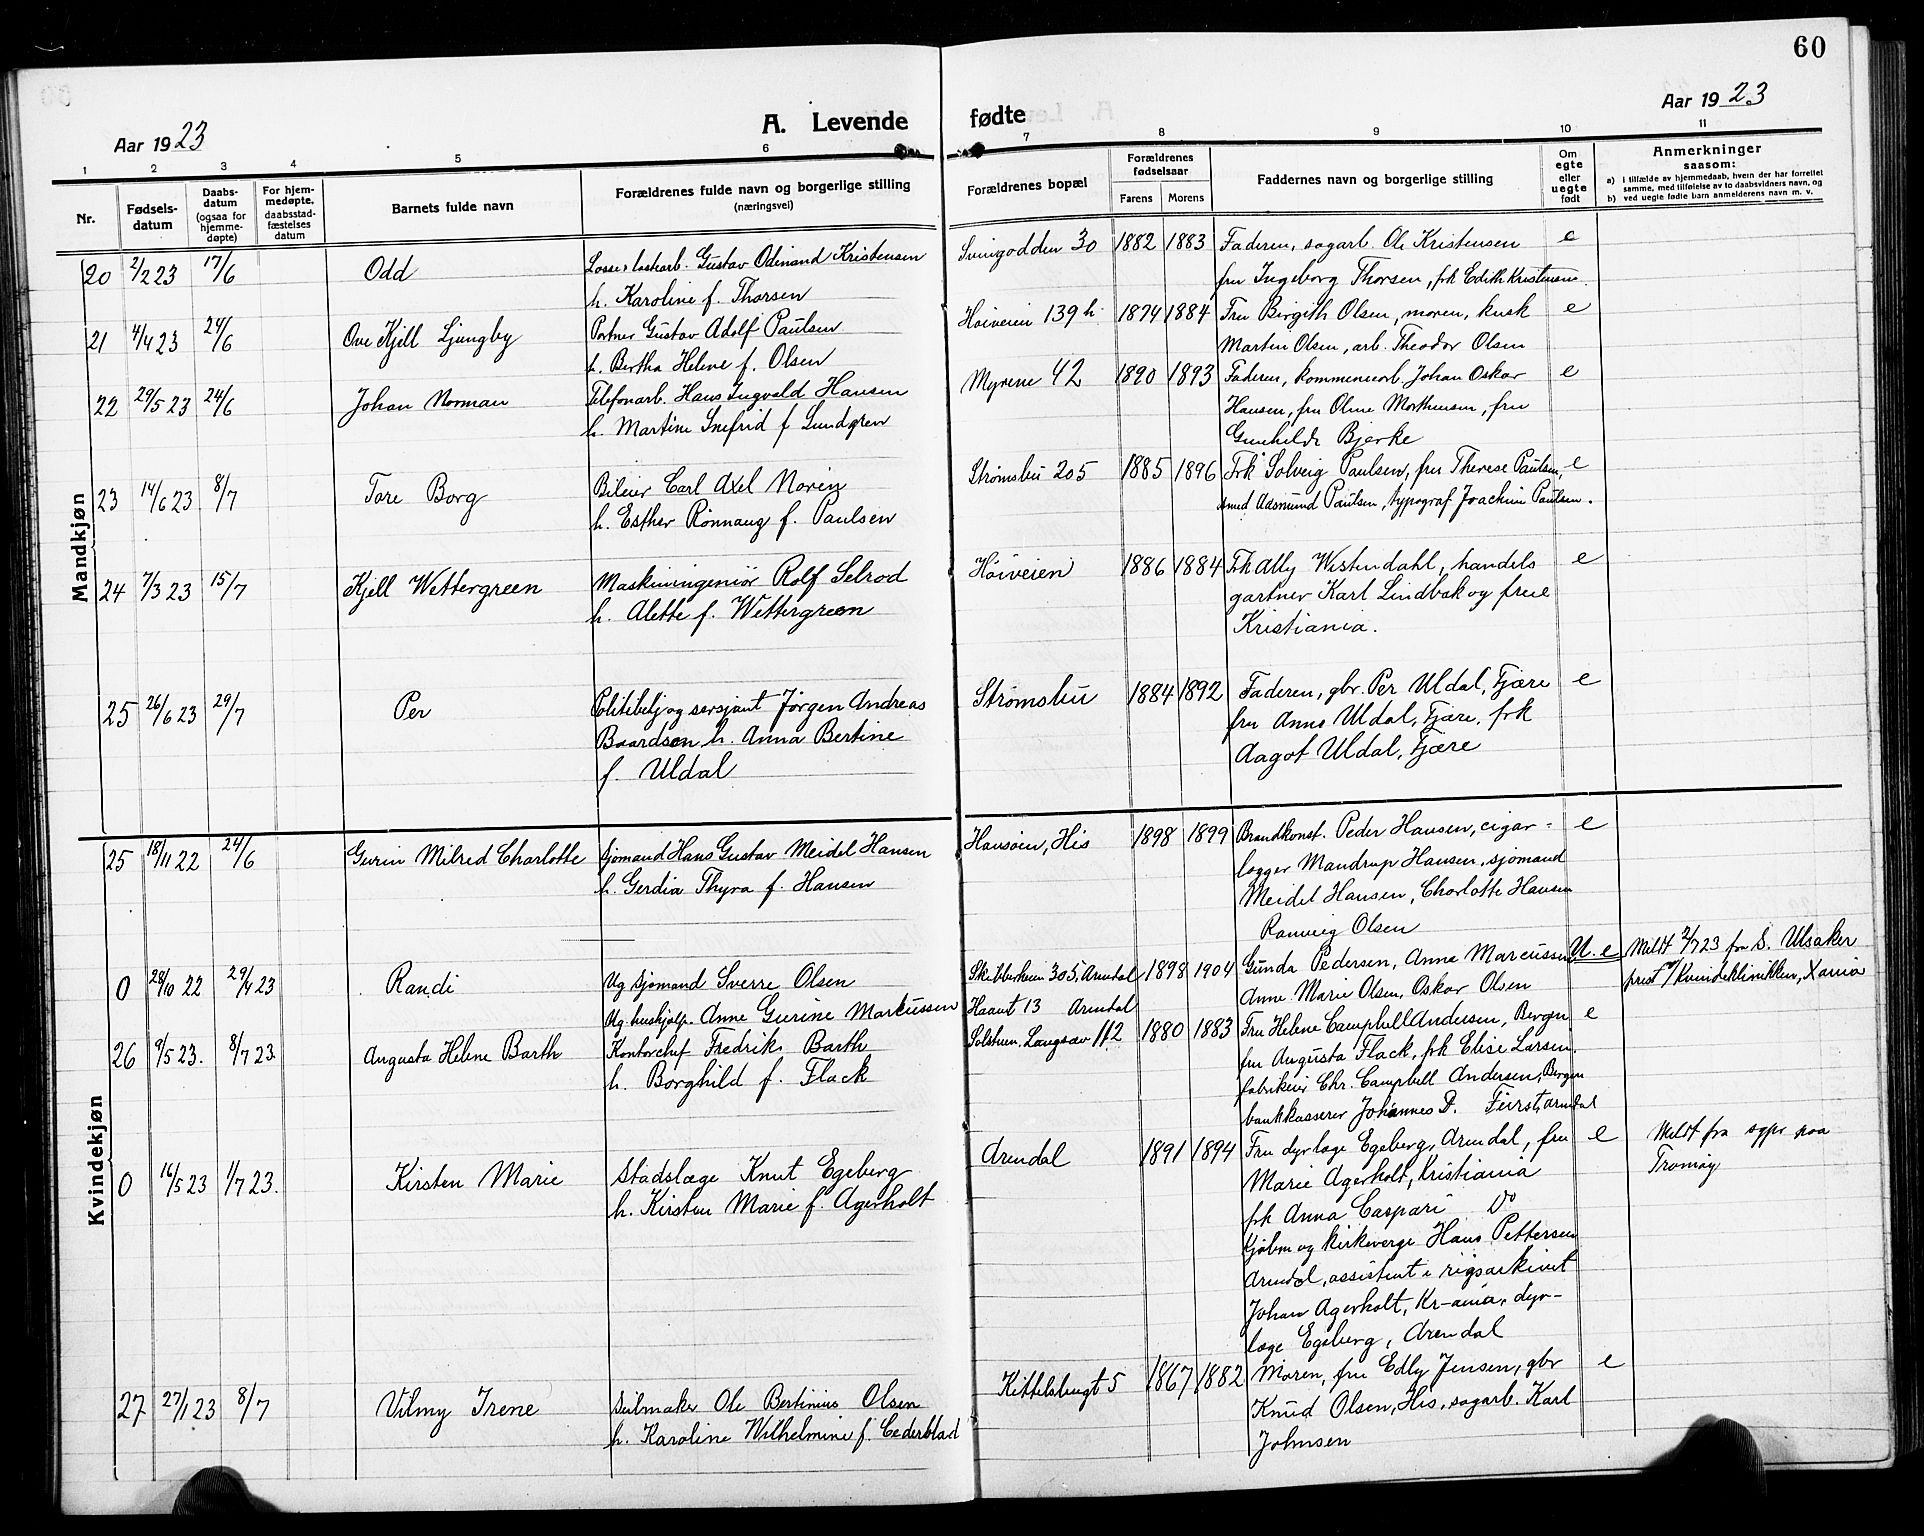 60
Aar 1923
A. Levende
fødte
Aar 1923
1 2 3 4 5 6 7 8 9 10 11
Nr.
Fødsels-
datum
Daabs-
datum
(ogsaa for
hjemme-
døpte)
For hjem-
medøpte,
daabsstad-
fæstelses
datum
Barnets fulde navn
Forældrenes fulde navn og borgerlige stilling
(næringsvei)
Forældrenes bopæl
Forældrenes
fødselsaar
Farens Morens
Faddernes navn og borgerlige stilling
Om
egte
eller
uegte
født
Anmerkninger
saasom:
a) i tilfælde av hjemmedaab, hvem der har forrettet
samme, med tilføielse av to daabsvidners navn, og
b) ved uegte fødte barn anmelderens navn m. v.
Mandkjøn
20 2/2 23 17/6 Odd
Losse & lastearb. Gustav Odinand Kristensen
h. Karoline f. Thorsen
Svinodden 30 1882 1883
Faderen, sagarb. Ole Kristensen
fru Ingeborg Thorsen, frk Edith Kristensen.
e
21 4/4 23 24/6 Ove Kjell Ljungby
Portner Gustav Adolf Paulsen
h. Bertha Helene f. Olsen
Høiveien 139 h. 1874 1884
Fru Birgith Olsen, moren, kusk
Martin Olsen, arb. Theodor Olsen
e
22 29/5 23 24/6 Johan Norman
Telefonarb. Hans Ingvald Hansen
h. Martine Snefrid f Lundgren
Myrene 42 1890 1893
Faderen, kommunearb Johan Oskar
Hansen, fru Oline Morthensen, fru
Gunhilda Bjerke
e
23 14/6 23 8/7 Tore Borg
Bileier Carl Axel Norin
h. Esther Rønnaug f. Paulsen
Strømsbu 205 1885 1896
Frk Solveig Paulsen, fru Therese Paulsen,
smed Aasmund Paulsen, typograf Joachim Paulsen.
e
24 7/3 23 15/7 Kjell Wettergreen
Maskiningeniør Rolf Selrod
h. Alette f. Wettergreen
Høiveien 1886 1884
Frk Ally Westendahl, handels
gartner Karl Lindbak og frue
Kristiania.
e
25 26/6 23 29/7 Per
Politibetj og sersjant Jørgen Andreas
Baardsen h. Anna Bertine
f. Uldal
Strømsbu 1884 1892
Faderen, gbr. Per Uldal, Fjære
fru Anna Uldal, Fjære, frk
Aagot Uldal, Fjære
e
Kvindekjøn
25 18/11 22 24/6 Gurin Milred Charlotte
Sjømand Hans Gustav Meidel Hansen
h. Gerdia Thyra f. Hansen
Havsøien, His 1898 1899
Brandkonst. Peder Hansen, cigar-
lægger Mandrup Hansen, sjømand
Meidel Hansen, Charlotte Hansen
Ranveig Olsen
e
0 28/10 22 29/4 23 Randi
Ug sjømand Sverre Olsen
Ug. hushjælp. Anne Gurine Markussen
Skibberheien 305, Arendal 1898 1904
Haavt 13 Arendal
Gunda Pedersen, Anna Marcussen
Anne Marie Olsen, Oskar Olsen
U. e
Meldt 2/7 23 fra S. Ulsaker
prest v/ Kvindeklinikken, Xania
26 9/5 23. 8/7 23. Augusta Helene Barth
Kontorchef Fredrik Barth
h. Borghild f. Flack
Solstuen, Langsæv 112 1880 1883
Fru Helene Campbell Andersen, Bergen
fru Augusta Flack, frk Elise Larsen.
fabrikeier Chr. Campbell Andersen, Bergen
bankkasserer Johannes D. Fürst, Arendal
e
0 16/5 23 1/7 23. Kirsten Marie
Stadslæge Knut Egeberg
h. Kirsten Marie f. Agerholt
Arendal 1891 1894
Fru dyrlæge Egeberg, Arendal, fru
Marie Agerholt, Kristiania
frk Anna Caspari Do
Kjøbm og kirkeverge Hans Pettersen
Arendal, assistent i rigsarkivet
Johan Agerholt, Kr-ania, dyr-
læge Egeberg, Arendal
e
Meldt fra sgpr paa
Tromøy
27 27/1 23 8/7 Vilmy Irene
Seilmaker Ole Bertinius Olsen
h. Karoline Wilhelmine f. Cederblad
Kittelsbugt 5 1867 1882
Moren, fru Edly Jensen, gbr
Knud Olsen, His, sagarb. Karl
Johnsen
e